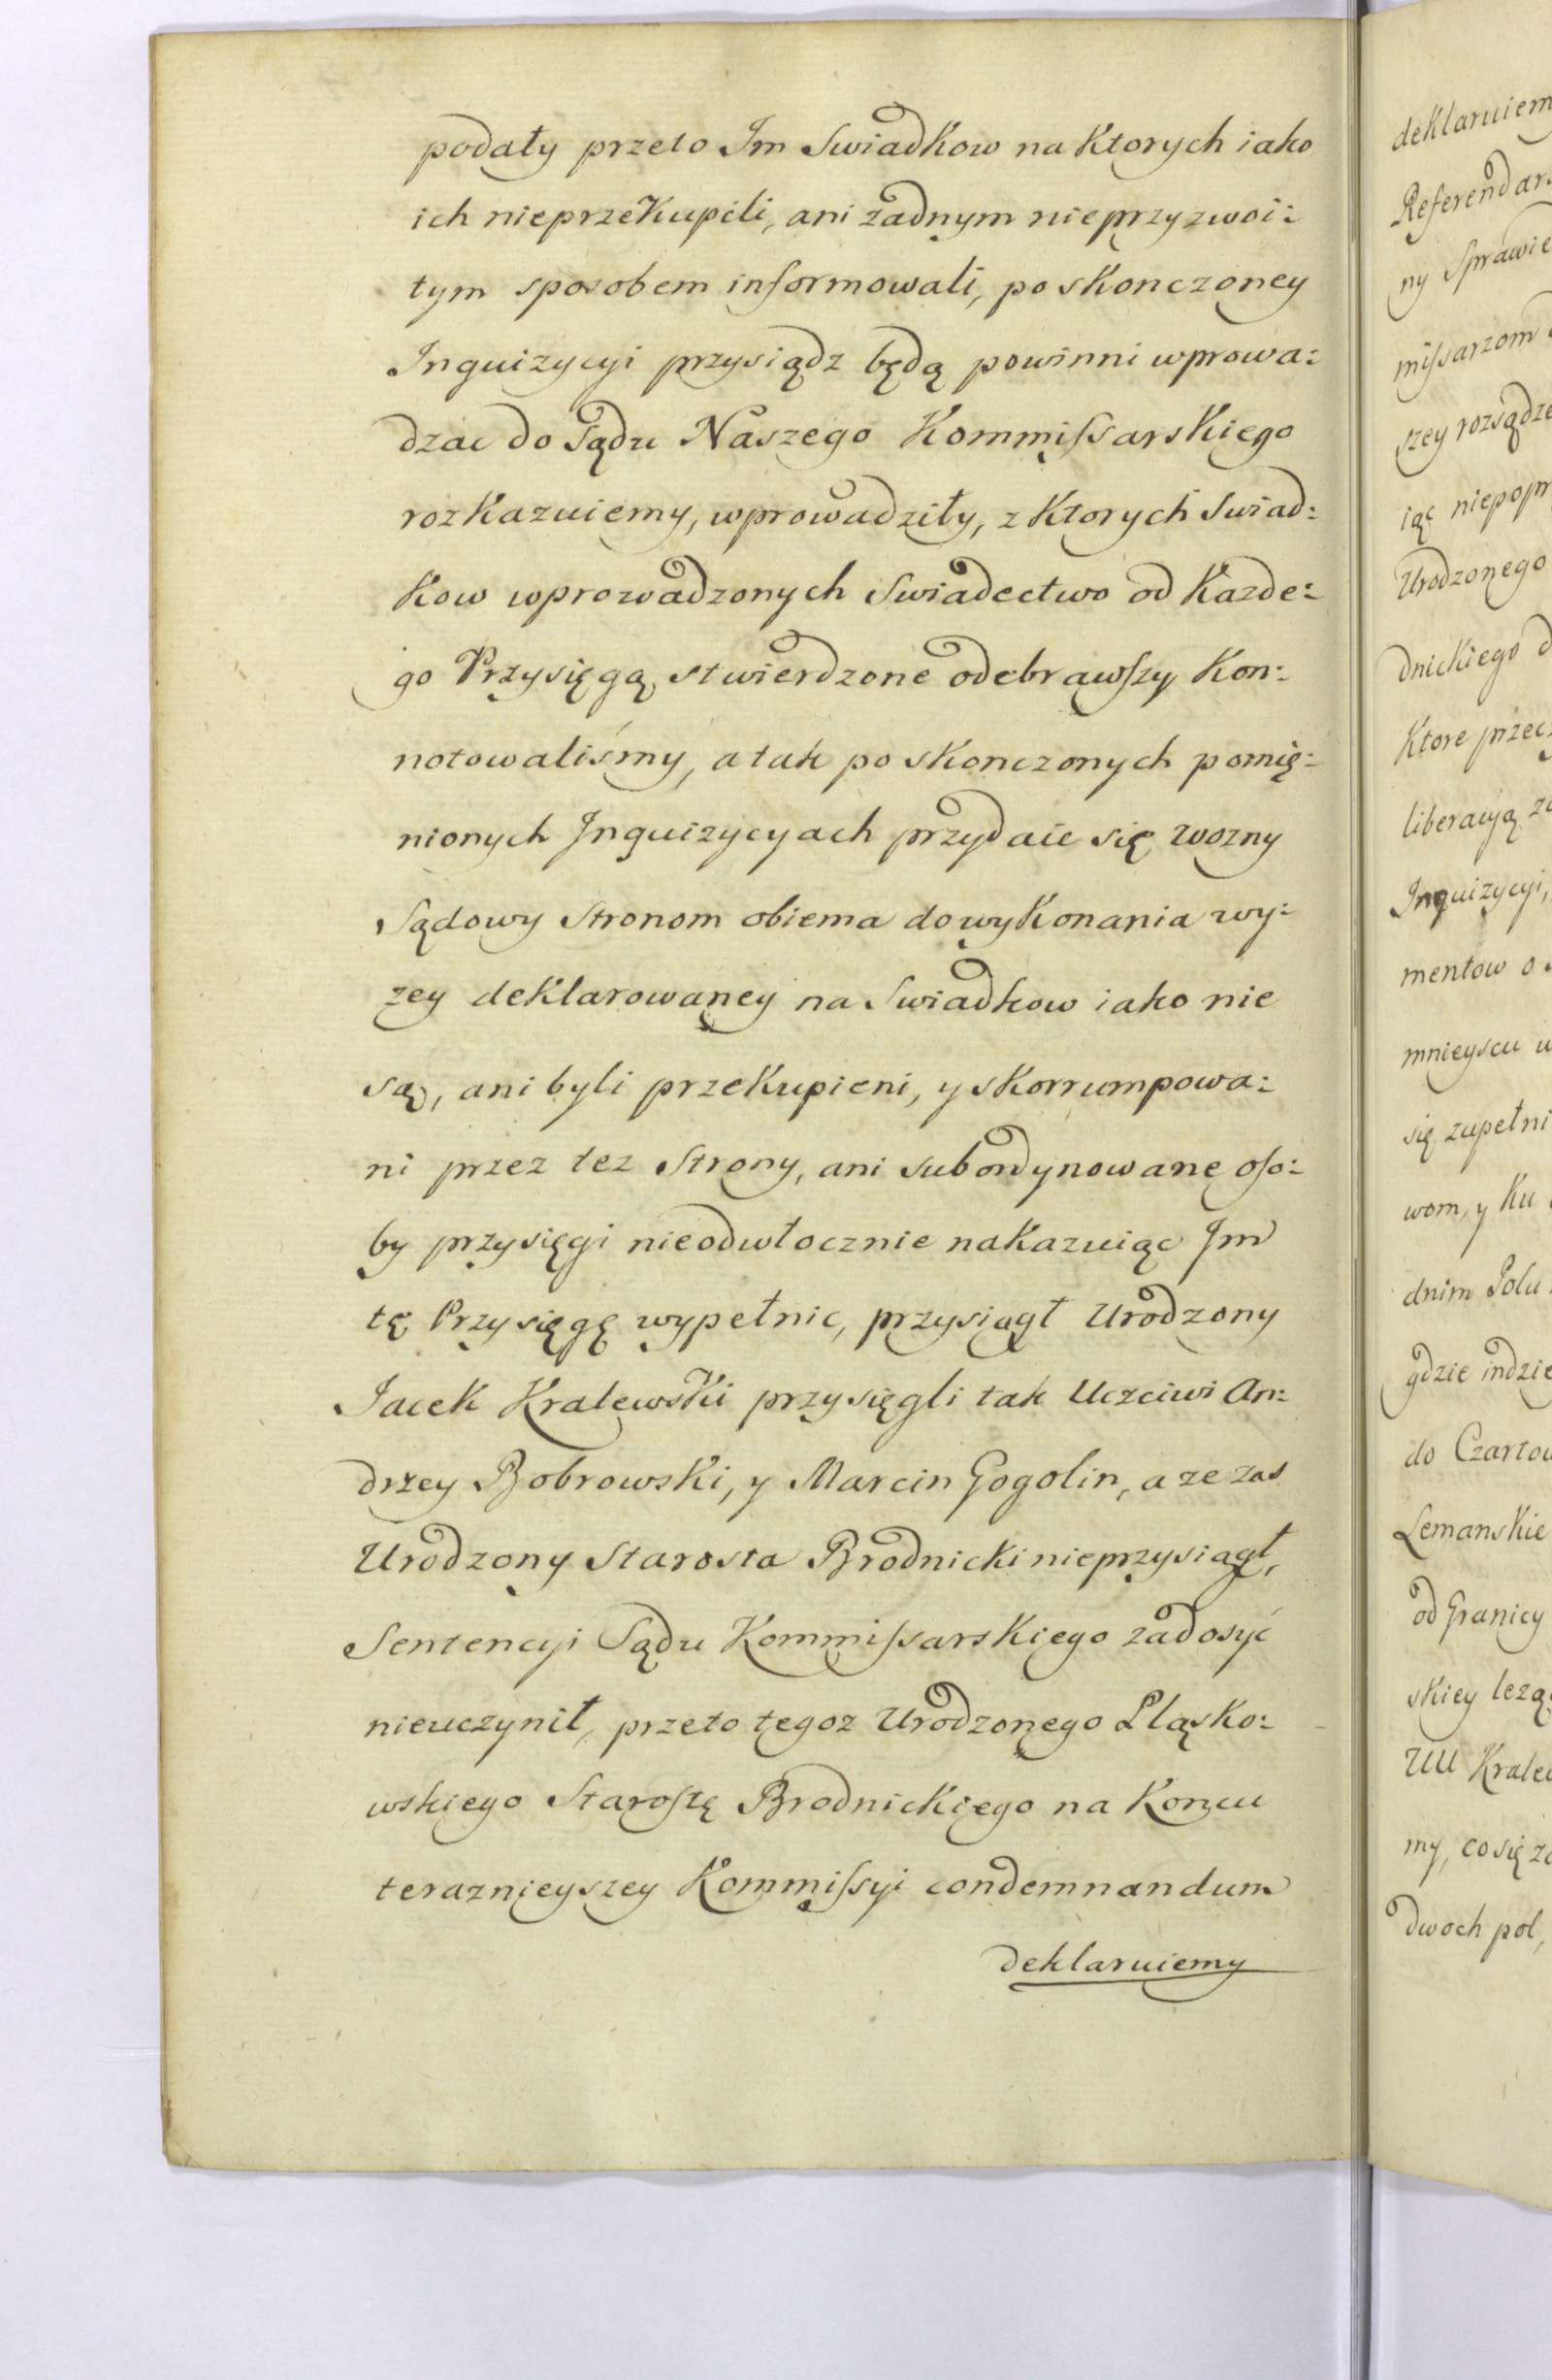 podały przeto Im Swiadkow na Ktorych iako
ich nieprzekupili, ani żadnym nieprzyzwoi:
tym sposobem informowali, po skonczoney
Inquizycyi przysiądz będą powinni wprowa:
dzac do Sądu Naszego Kommissarskiego
rozkazuiemy, wprowadziły, z Ktorych Swiad:
Kow wprowadzonych Swiadectwo od Kazde:
go Przysięgą stwierdzone odebrawszy Kon:
notowaliśmy, a tak po skonczonych pomię:
nionych Inquizycyach przydaie się wozny
Sądowy Stronom obiema do wykonania wy:
zey deklarowaney na Swiadkow iako nie
są, ani byli przekupieni, y skorrumpowa:
ni przez tez Strony, ani subordynowane oso:
by przysięgi nieodwłocznie nakazuiąc Im
tę Przysięgę wypełnic, przysiągł Urodzony
Jacek Kralewski przysięgli tak Uczciwi An:
drzey Bobrowski, y Marcin Gogolin, a ze zas
Urodzony Starosta Brodnicki nieprzysiągł,
Sentencyi Sądu Kommissarskiego zadosyć
nieuczynił, przeto tegoz Urodzonego Pląsko:
wskiego Starostę Brodnickiego na Koncu
teraznieyszey Kommissyi condemnandum
deklaruiemy
deklaruiem
Referendar
ny Sprawie
missarzom
szey rozsądze
iąc niepopr
Urodzonego
dnickiego d
Ktore przec
liberacyą za
Inquizycyi,
mentow o
mnieyscu u
się zupełni
wom, y Ku
dnim Polu
gdzie indzie
do Czartow
Lemanskie
od Granicy
skiey lezą
UU Kralew
my, co się za
dwoch pol,